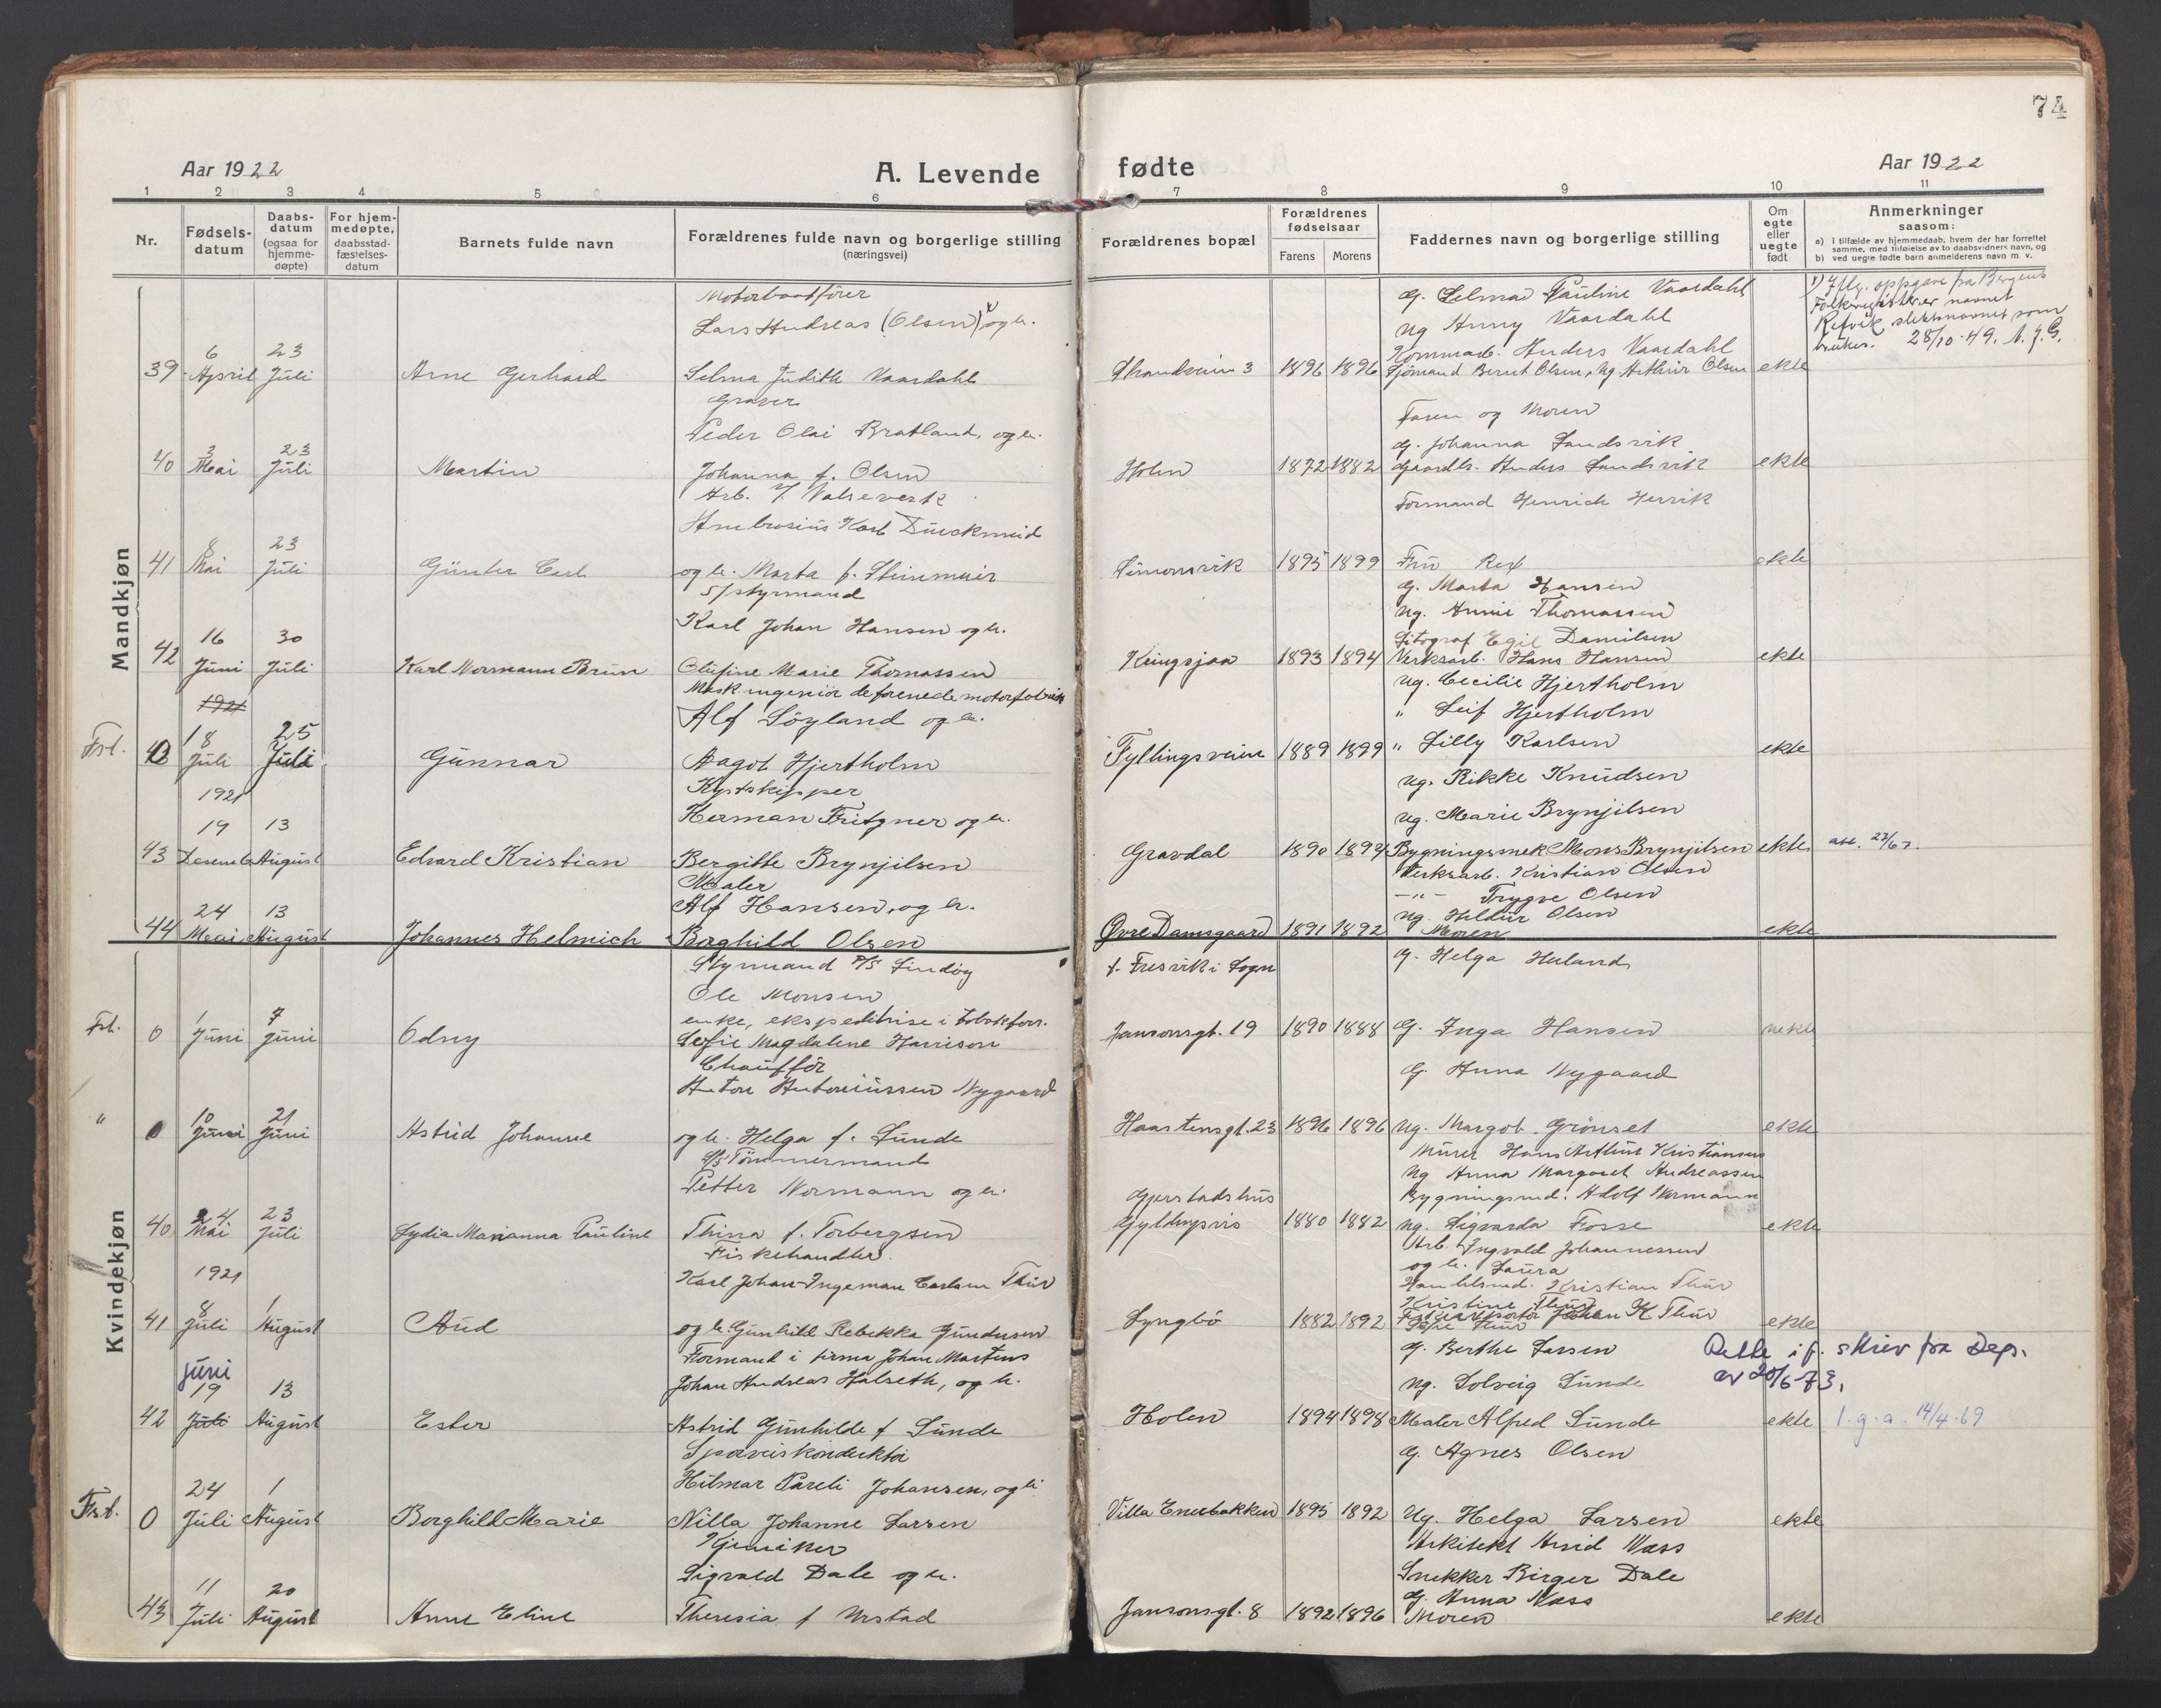 74
Aar 1922
A. Levende
fødte
Aar 1922
1 2 3 4 5 6 7 8 9 10 11
Nr.
Fødsels-
datum
Daabs-
datum
(ogsaa for
hjemme-
døpte)
For hjem-
medøpte,
daabsstad-
fæstelses-
datum
Barnets fulde navn
Forældrenes fulde navn og borgerlige stilling
(næringsvei)
Forældrenes bopæl
Forældrenes
fødselsaar
Farens Morens
Faddernes navn og borgerlige stilling
Om
egte
eller
uegte
født
Anmerkninger
saasom:
a) i tilfælde av hjemmedaab, hvem der har forrettet
samme, med tilføielse av to daabsvidners navn, og
b) ved uegte fødte barn anmelderens navn m. v.
Mandkjøn
39
6
April
23
Juli
Arne Gerhard
Motorbaatfører
Lars Andreas (Olsen) x) og h.
Selma Judith Vaardahl
3 1896 1896
g. Selma Pauline Vaardahl
ug Anny Vaardahl
Anders Vaardahl
Sjömand Bernt Olsen, ug Arthur Olsen
ekte
x) Iflg. oppgave fra Bergens
Folkeregister er navnet
Refvik slektsnavnet som
brukes. 28/10-49.
40
3
Mai
23
Juli
Martin
Graver
Peder Olai Bratland, og h.
Johanna f. Olsen
Holen 1872 1882
Faren og Moren
g. Johanna Sandsvik
Gaardbr. Anders Sandsvik
Formand Henrich Herrik
ekte
41
8
Mai
23
Juli
Günter Carl
Arb. v/ Valseverk
Ambrosius Karl
og h. Marta f.
Simonsvik 1895 1899
Fru Rex
ekte
42
16
Juni
30
Juli
Karl Normann Brun
S/styrmand
Karl Johan Hansen og h.
Olufine Marie Thomassen
Kringsjaa 1893 1894
g. Marta Hansen
ug. Annie Thomassen
Litograf Egil Danielsen
Verksarb. Hans Hansen
ekte
Fst.
0
1921
18
Juli
25
Juli
Gunnar
Mask ingeniör de forenede motorfabrik
Alf Söyland og h.
Dagot Hjertholm
Fyllingsveien 1889 1899
ug. Cecilie Hjertholm
" Leif Hjertholm
" Lilly Karlsen
ug. Rikke Knudsen
ekte
43
1921
19
Desember
13
August
Edvard Kristian
Kystskipper
Herman Fritzner og h.
Bergitte Brynjilsen
Gravdal 1890 1894
ug. Marie Brynjilsen
Bygningsmek Mons Brynjilsen
ekte
att. 27/67.
44
24
Mai
13
August
Johannes Helmich
Maler
Alf Hansen, og h.
Borghild Olsen
Övre Damsgaard 1891 1892
Verksarb. Kristian Olsen
—"— Trygve Olsen
ug. Heldur Olsen
Moren
ekte
Kvindekjøn
Fst.
0
1
Juni
7
Juni
Odny
Styrmand D/S Lindöy
Ole Monsen
enke, ekspeditrise i
Sofie Magdalene Harrison
f. Fresvik i Sogn
Jansonsgt. 19 1890 1888
g. Helga Huland
g. Inga Hansen
uekte
"
0
10
Juni
21
Juni
Astrid Johanne
Chaufför
Anton Antoniussen Nygaard
og h. Helga f. Lunde
Haastensgt. 23 1896 1896
g. Anna Nygaard
ug. Margot Grönset
ekte
40
24
Mai
23
Juli
Lydia Marianna Pauline
S/S Tömmermand
Petter Normann og h.
Thina f. Torbergsen
Gjerstadshus
1880 1882
Murer Hans Arthur Kristiansen
ug Anna Margaret Andreassen
Bygningsmd. Adolf Normann
ug. Sigvarda Fosse
ekte
41
1921
8
Juli
1
August
Aud
Fiskehandler
Karl Johan Ingeman Carlsen Thur
og h. Gunhild Rebekka Gundersen
Lyngbö 1882 1892
Arb. Ingvald Johannessen
og h. Laura
Handelsmd. Kristian Thur
Kristine Thur
Johan K Thur
ekte
42
juni
19
Juli
13
August
Ester
Formand i firma Johan Martens
Johan Andreas Halseth, og h.
Astrid Gunhilde f Lunde
Holen 1894 1898
g. Berthe Larsen
ug. Solveig Lunde
Maler Alfred Lunde
ekte
Rettet i fl. skriv fra Dep.
av 20/6-73.
l.g.a. 14/4.69
Fst.
0
24
Juli
1
August
Borghild Marie
Sporveiskonduktör
Hilmar Pareli Johansen, og h
Nilla Johanne Larsen
Villa Enerbakken 1895 1892
g. Agnes Olsen
Ug. Helga Larsen
ekte
43
11
Juli
20
August
Anne Eline
Kjemiker
Sigvald Dale og h.
Theresia f Urstad
Jansonsgt. 8 1892 1896
Arkitekt Arvid Næss
Snekker Birger Dale
g. Anna Næss
Moren
ekte